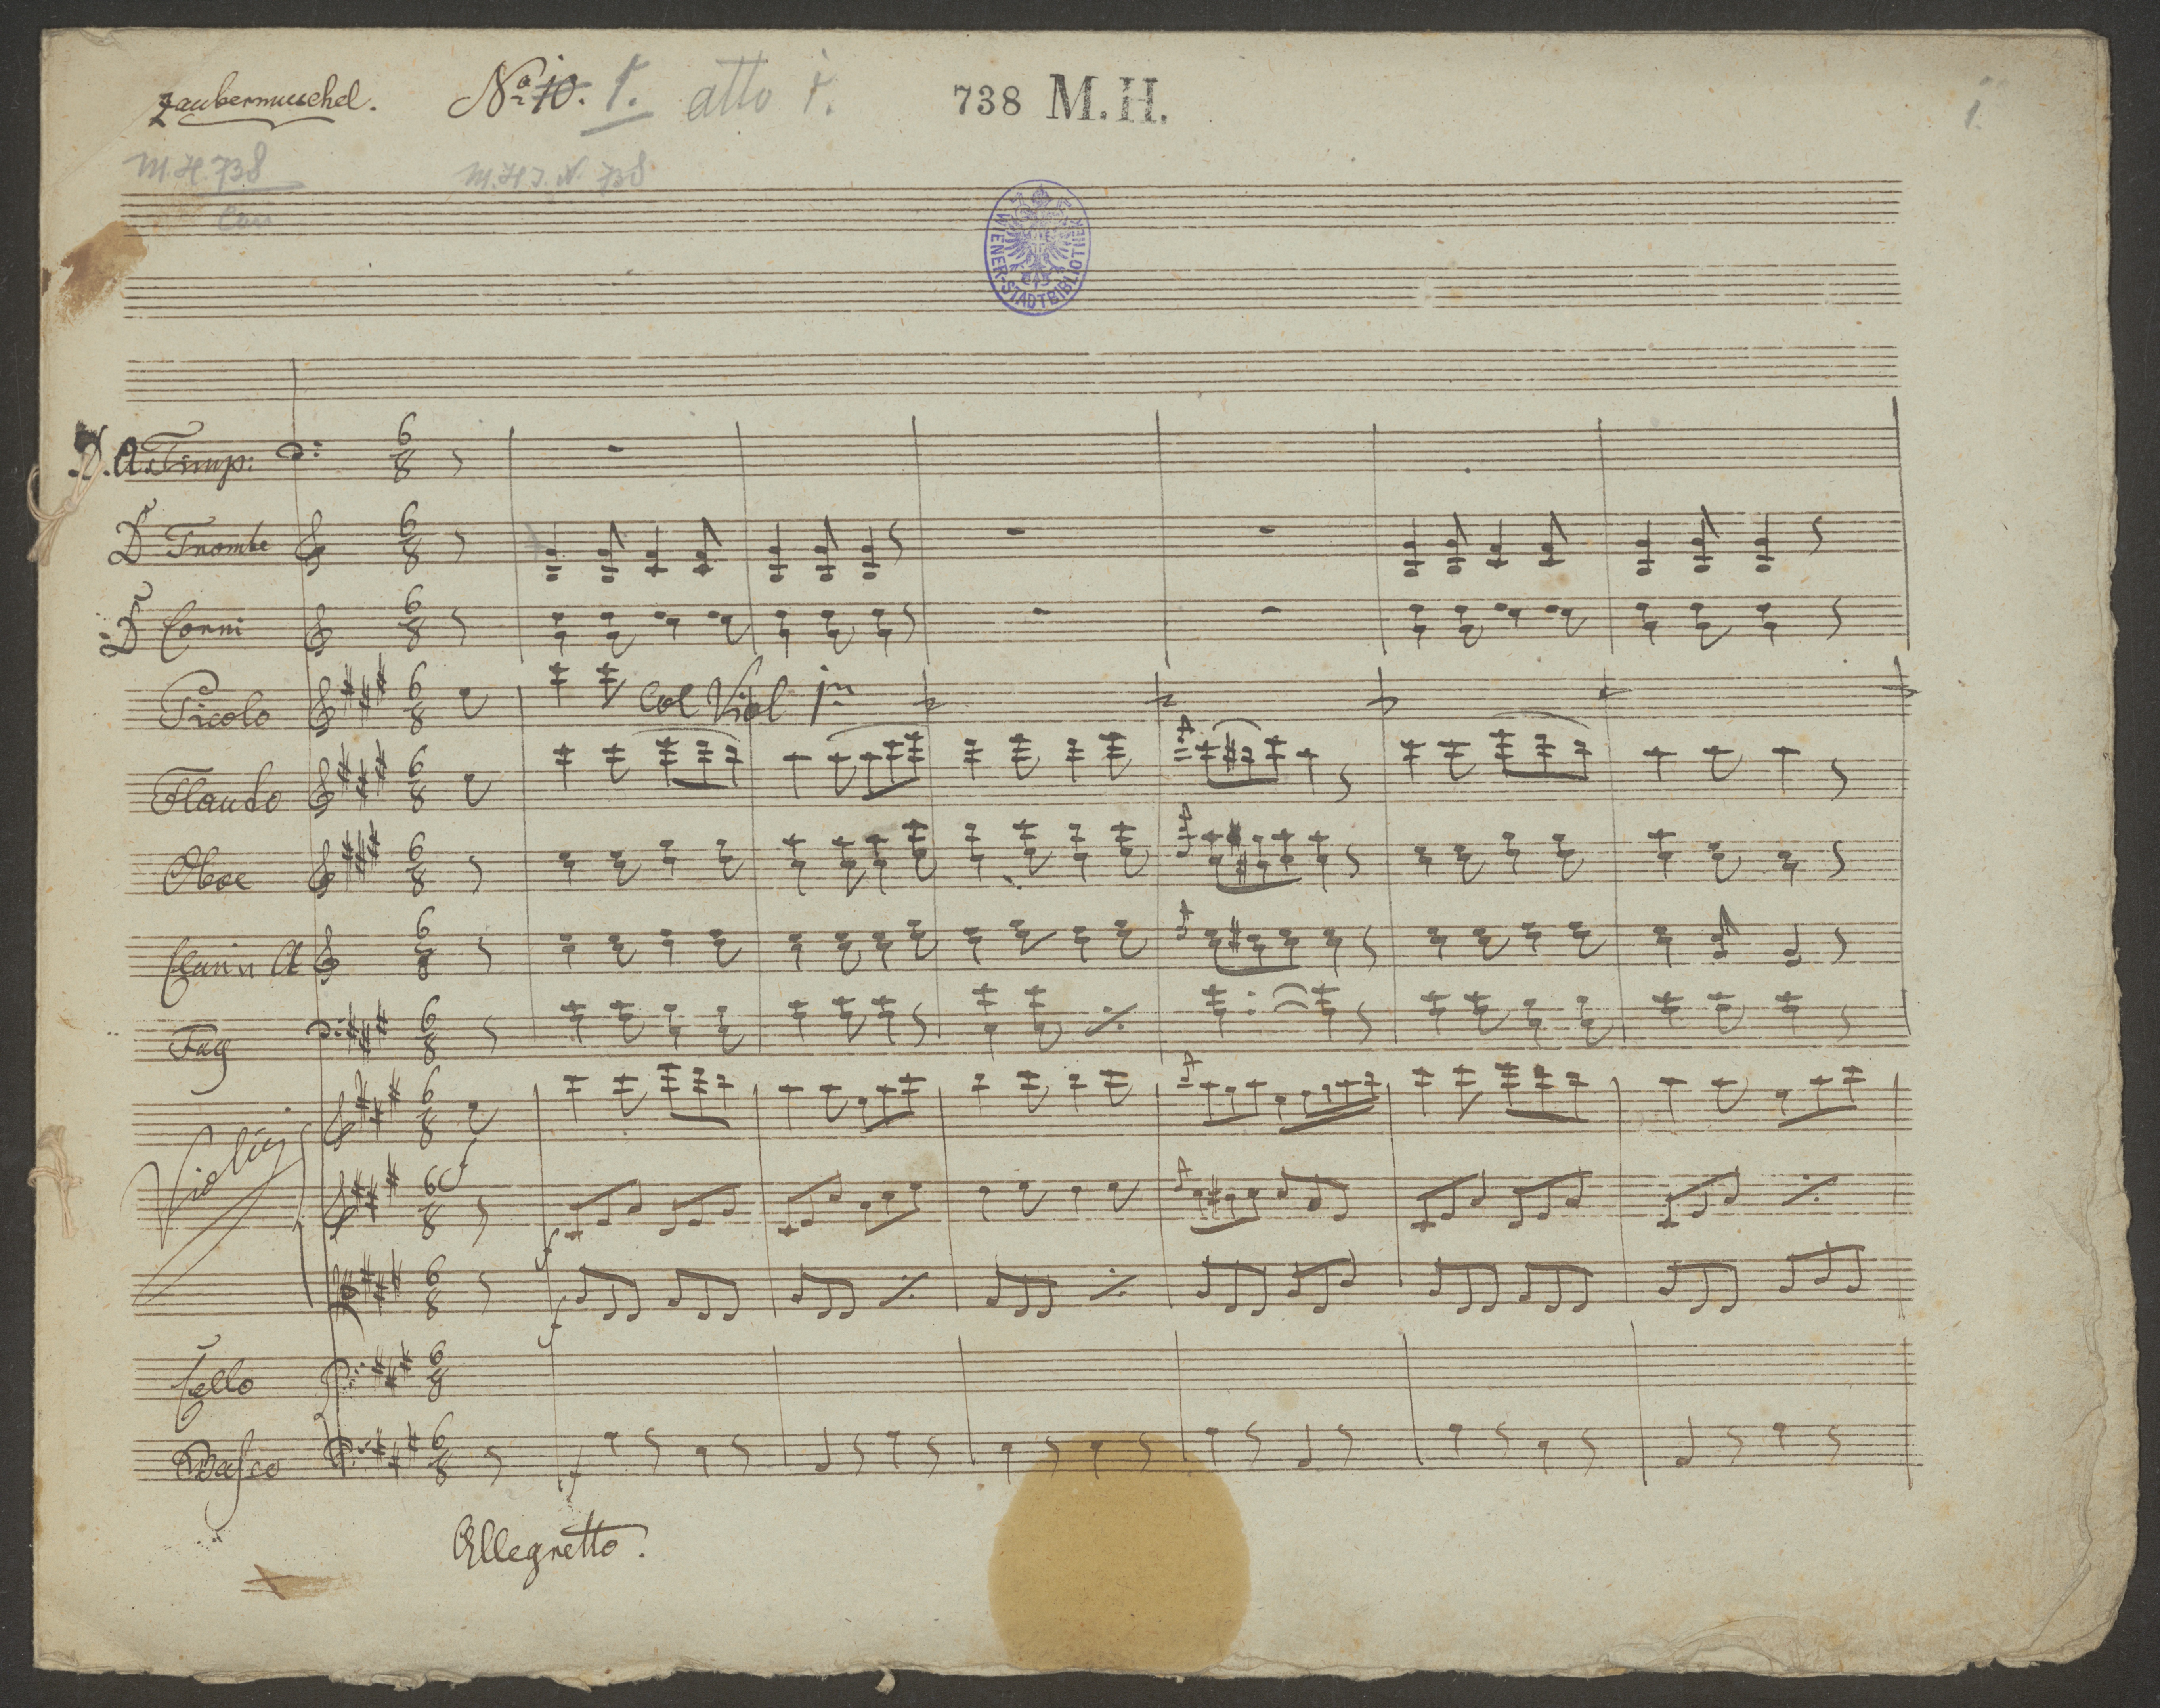 Zaubermuschel. No 10. 1. atto 1. 738 M.H. 1.
M.H. 738 M.H.I.N. 738
WIENER-STADTBIBLIOTHEK
D. A. Timp:
D Trombe
D Corni
Picolo Col Viol 1mo
Flauto
Oboe
Clari in A
Fag
Violini
f
f
f
Cello
Basso
f
Allegretto.